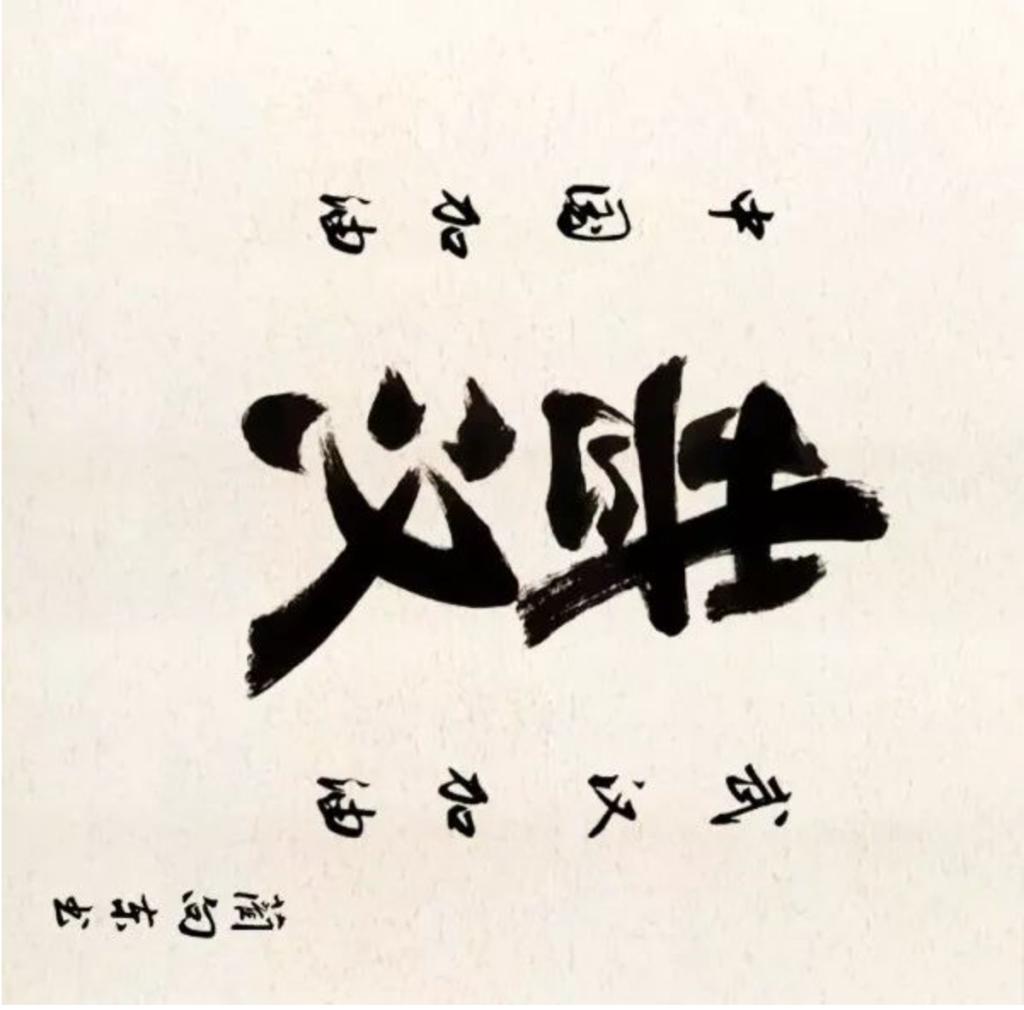 中国加油
武汉
武汉加油